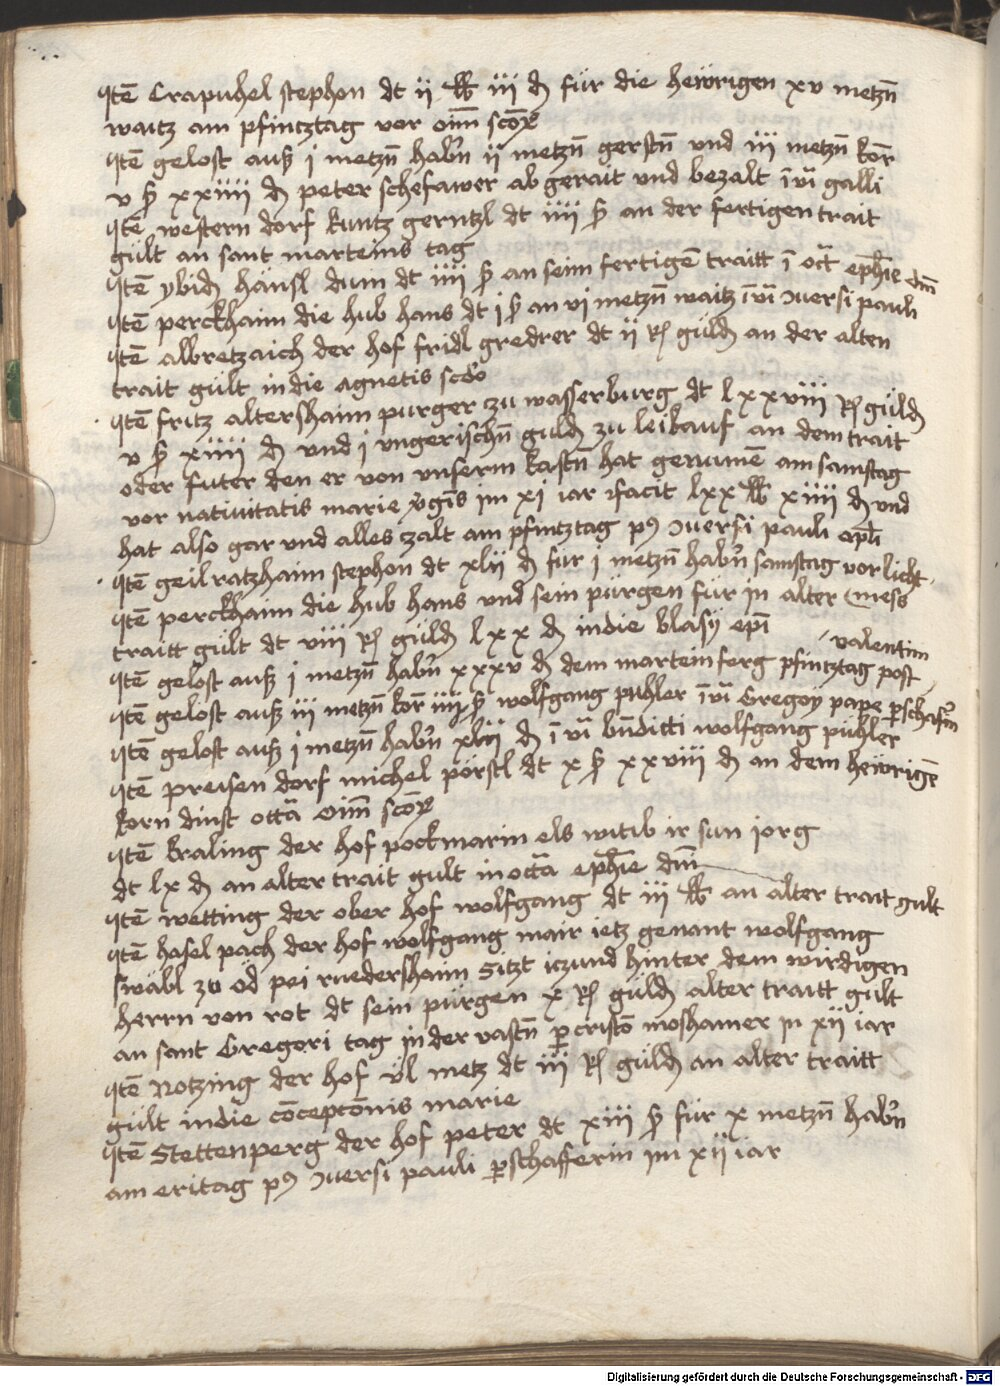 Itē Crapuhel stephon dt ii lb iii d für die hewrigen xv metzn̄
waitz am pfintztag vor oīm scōꝝ
Itē gelost auß i metzn̄ habn̄ ii metzn̄ gerstn̄ und iii metzn̄ korn̄
v ß xxiiii d peter schefawer ab gerait und bezalt ī vī galli
Itē western dorf kuntz gerntzl dt iiii ß an der fertigen trait
gült an sant marteins tag
Itē ybich hänsl dum dt iiii ß an seim fertigē traitt ī oct̄ eph̄ie dn̄i
Itē perckhaim die hub hans dt i ß an vi metzn̄ waitz ī vī ꝯversi pauli
Itē albretzaich der hof fridl gredrer dt ii R guld an der alten
trait gült in die agnetis scdo
Itē fritz altershaim purger zu wasserburg dt lxxviii R guld
v ß xiiii d und i ungerischn̄ guld zu leikauf an dem trait
oder futer den er von unserm kastn̄ hat genumē am samstag
vor nativitatis marie v̄gīs im xi iar ꝛfacit lxx lb xiiii d und
hat also gar und alles zalt am pfintztag pꝰ ꝯversi pauli apl̄i
Itē geilratzhaim stephon dt xlii d für i metzn̄ habn̄ samstag vor licht
Itē perckhaim die hub hans und sein pürgen für in alter (mess
traitt gült dt viii R guld lxx d in die blasy ep̄i
/ valentini
Itē gelost auß i metzn̄ habn̄ xxxv d dem martein ferg pfintztag post
Itē gelost auß iii metzn̄ korn̄ iiii ß wolfgang puhler ī vī Gregoy pape ꝑschafn̄
Itē gelost auß i metzn̄ habn̄ xlii d ī vī bn̄ditti wolfgang pühler
Itē preisen dorf michel pörstl dt x ß xxviii d an dem hewrigē
korn dinst octā oīm scōꝝ
Itē kraling der hof pockmarin els witib ir sun jorg
dt lx d an alter trait gult in octā eph̄ie dn̄i
Itē wetting der ober hof wolfgang dt iii lb an alter trait gult
Itē haselpach der hof wolfgang mair ietz genant wolfgang
swäbl zu öd pei ruedershaim Sitzt iczund hinter dem wirdigen
herrn von rot dt sein pürgen x R guld alter traitt gült
an sant Gregori tag in der vastn̄ ꝑ cristō moshamer in xii iar
Itē Notzing der hof ül metz dt iii R guld an alter traitt
gült in die cōceptōnis marie
Itē Stettenperg der hof peter dt xiii ß für x metzn̄ habn̄
am eritag pꝰ ꝯversi pauli ꝑ schafferin im xii iar
Digitalisierung gefördert durch die Deutsche Forschungsgemeinschaft - DFG